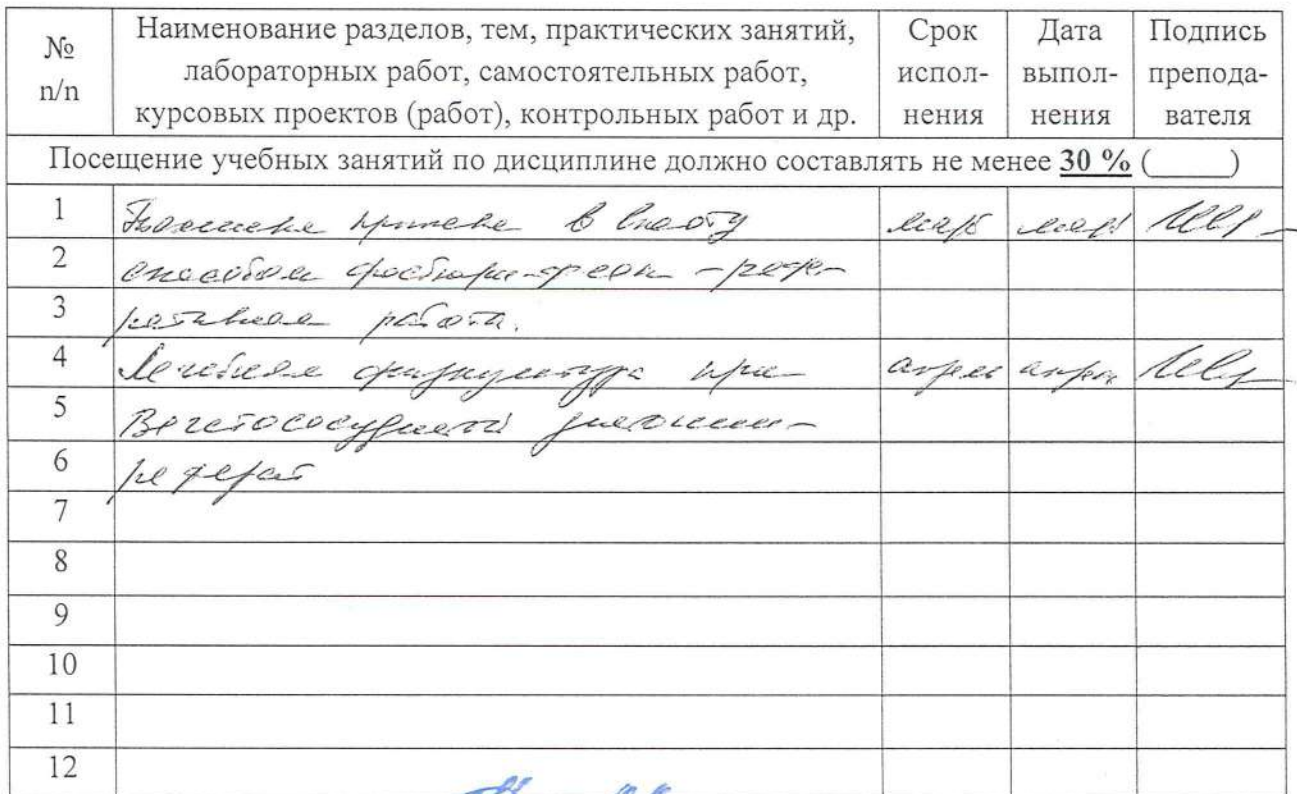 № п/п
Наименование разделов, тем, практических занятий,
лабораторных работ, самостоятельных работ,
курсовых проектов (работ), контрольных работ и др.
Срок испол-
нения
Дата выпол-
нения
Подпись препода-
вателя
Посещение учебных занятий по дисциплине должно составлять не менее 30 % (_____)
1 Техника прыжка в высоту март март
2 способом фосбюри-флоп - рефе-
3 ративная работа.
4 Лечебная физкультура при апрель апрель
5 Вегетососудистой дистонии -
6 реферат
7
8
9
10
11
12